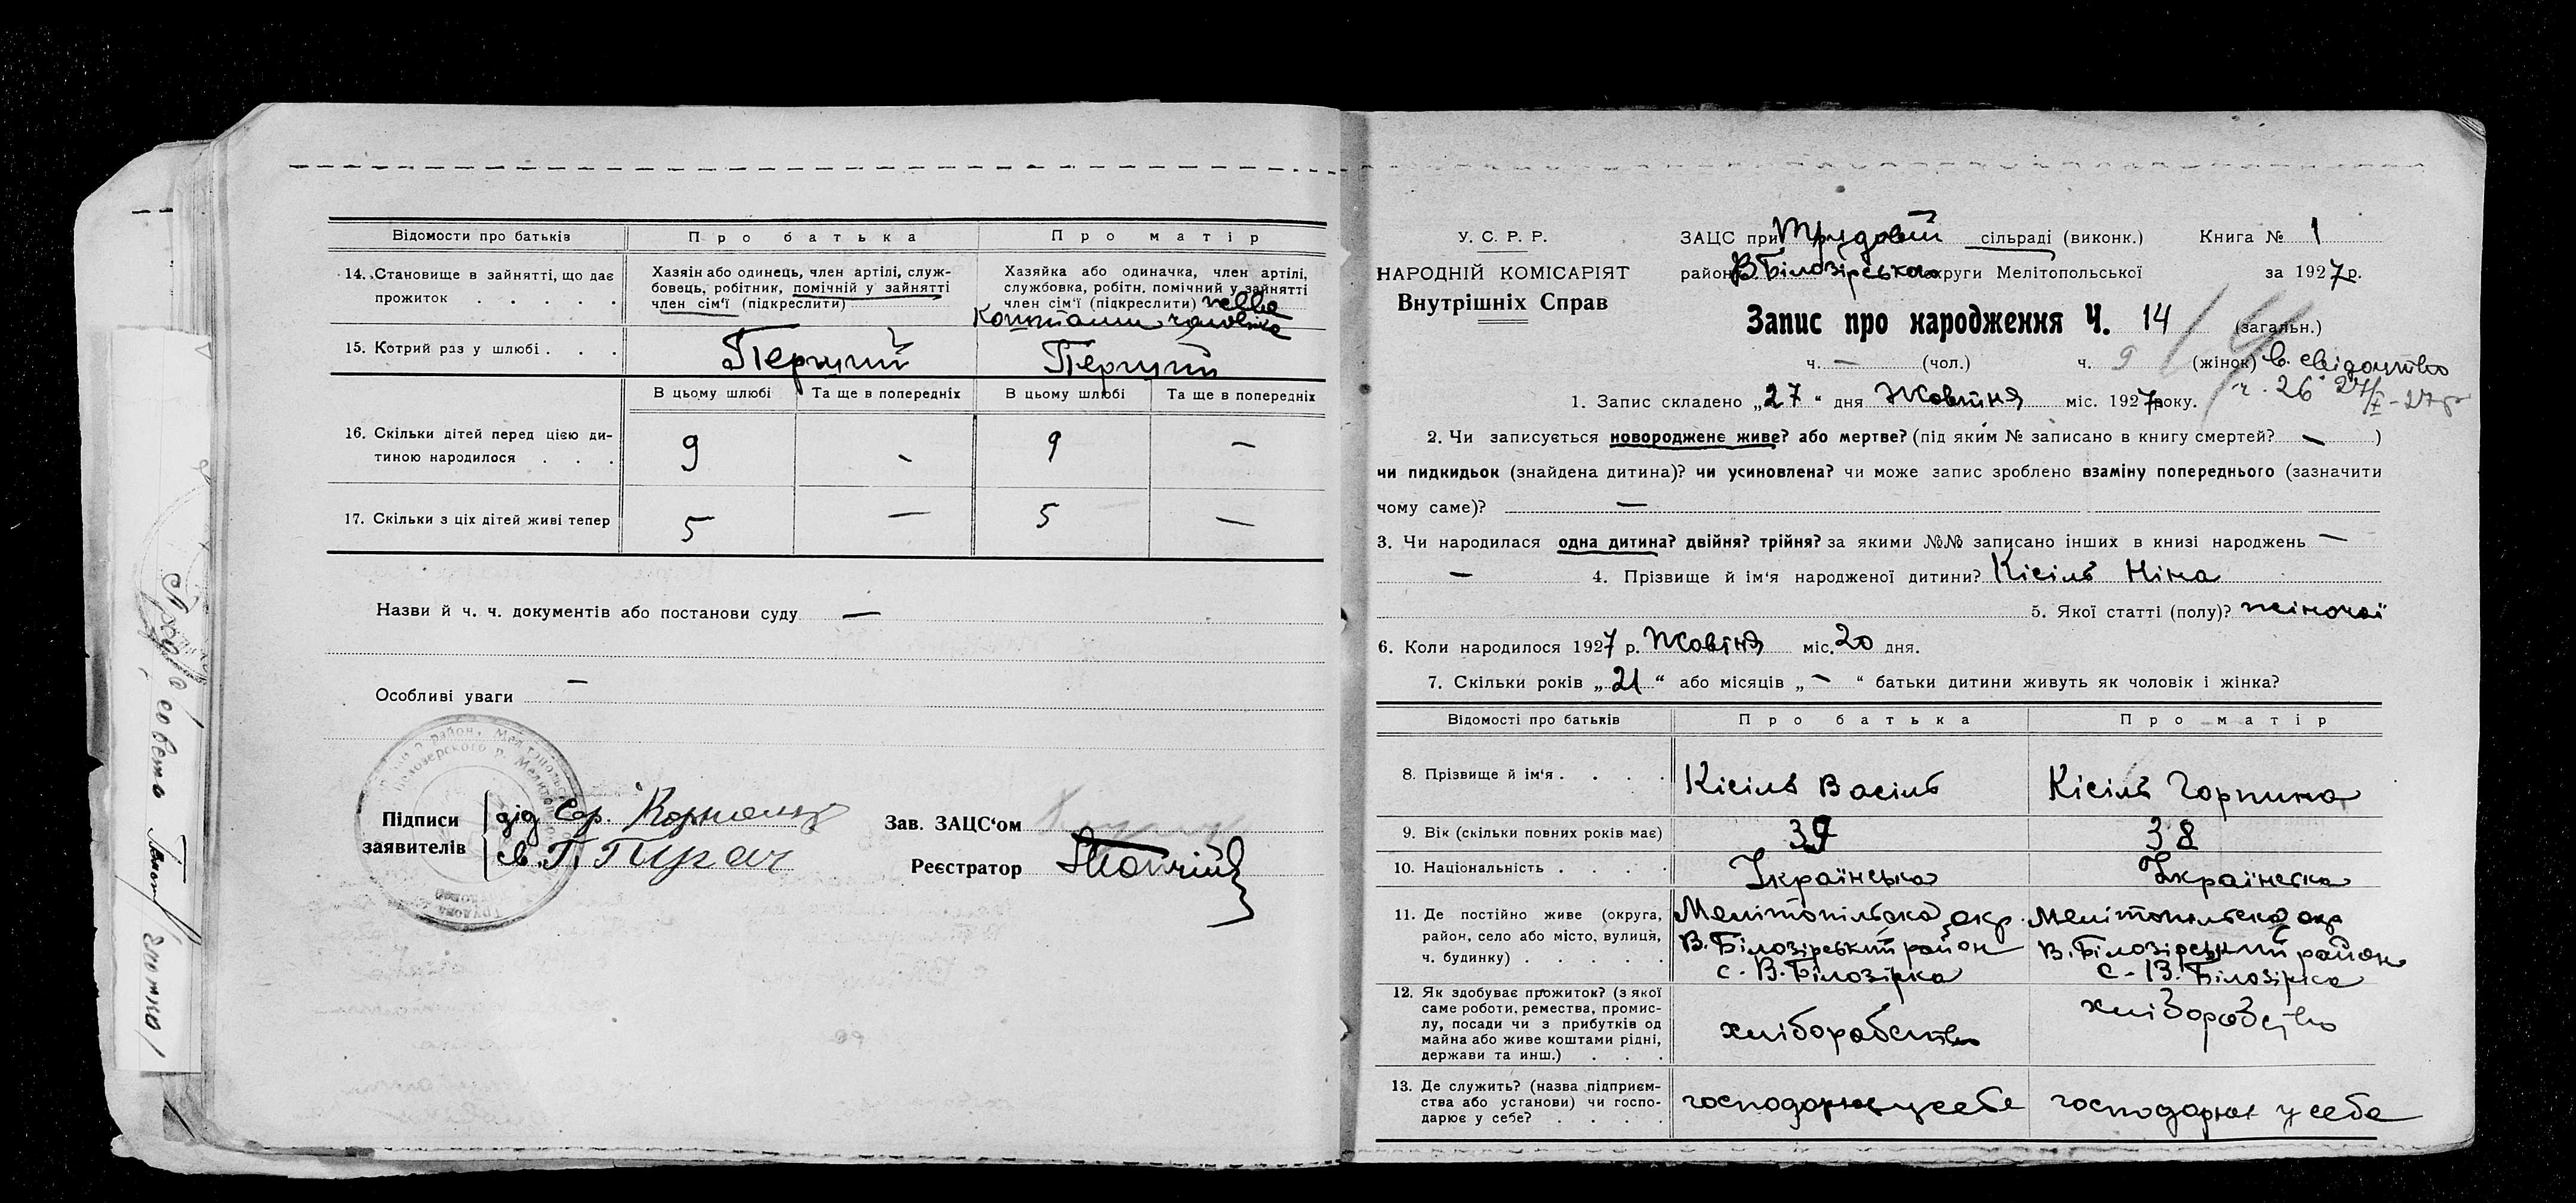 Відомости про батьків
Про батька
Про матір
14. Становище в зайнятті, що дає прожиток . . . . .
Хазяін або одинець, член артілі, служ-
бовець, робітник, помічній у зайнятті
член сім'ї (підкреслити)
Хазяйка або одиначка, член артілі,
службовка, робітн. помічний у зайнятті
член сім'ї (підкреслити)
коштами чоловіка
15. Котрий раз у шлюбі . . .
Перший
Перший
В цьому шлюбі
Та ще в попередніх
В цьому шлюбі
Та ще в попередніх
16. Скільки дітей перед цією ди-
тиною народилося . . .
9
-
9
—
17. Скільки з ціх дітей живі тепер
5
—
5
—
Назви й ч. ч. документів або постанови суду —
Особливі уваги —
Підписи
заявителів
дід
св. Г. Пугач
Зав. ЗАЦС'ом
Реєстратор
У. С. Р. Р.
НАРОДНІЙ КОМІСАРІЯТ
Внутрішніх Справ
ЗАЦС при Трудовій сільраді (виконк.) Книга № 1
район В Білозірсько округи Мелітопольської за 1927 р.
Запис про народження Ч. 14 (загальн.)
14
ч. — (чол.) ч. 9 (жінок) в. свідоцтво
ч. 26 27/X-27р
1. Запис складено „27" дня Жовтня міс. 1927 року.
2. Чи записується новороджене живе? або мертве? (під яким № записано в книгу смертей? — )
чи пидкидьок (знайдена дитина)? чи усиновлена? чи може запис зроблено взаміну попереднього (зазначити
чому саме)? —
3. Чи народилася одна дитина? двійня? трійня? за якими №№ записано інших в книзі народжень —
— 4. Прізвище й ім'я народженої дитини? Кісіль Ніна
5. Якої статті (полу)? жіночої
6. Коли народилося 1927 р. Жовтня міс. 20 дня.
7. Скільки років „21" або місяців „—" батьки дитини живуть як чоловік і жінка?
Відомості про батьків
Про батька
Про матір
8. Прізвище й ім'я . . . .
Кісіль Васіль
Кісіль Горпина
9. Вік (скільки повних років має)
39
38
10. Національність . . . .
Українська
Українська
11. Де постійно живе (округа,
район, село або місто, вулиця,
ч. будинку) . . . . .
Мелітопільська окр.
В. Білозірський район
с. В. Білозірка
Мелітопільска окр
В. Білозірський район
с. В. Білозірка
12. Як здобуває прожиток? (з якої
саме роботи, ремества, промис-
лу, посади чи з прибутків од
майна або живе коштами рідні,
держави та инш.) . . .
хліборобство
хліборобство
13. Де служить? (назва підприєм-
ства або установи) чи госпо-
дарює у себе? . . . .
господарює у себе
господарює у себе